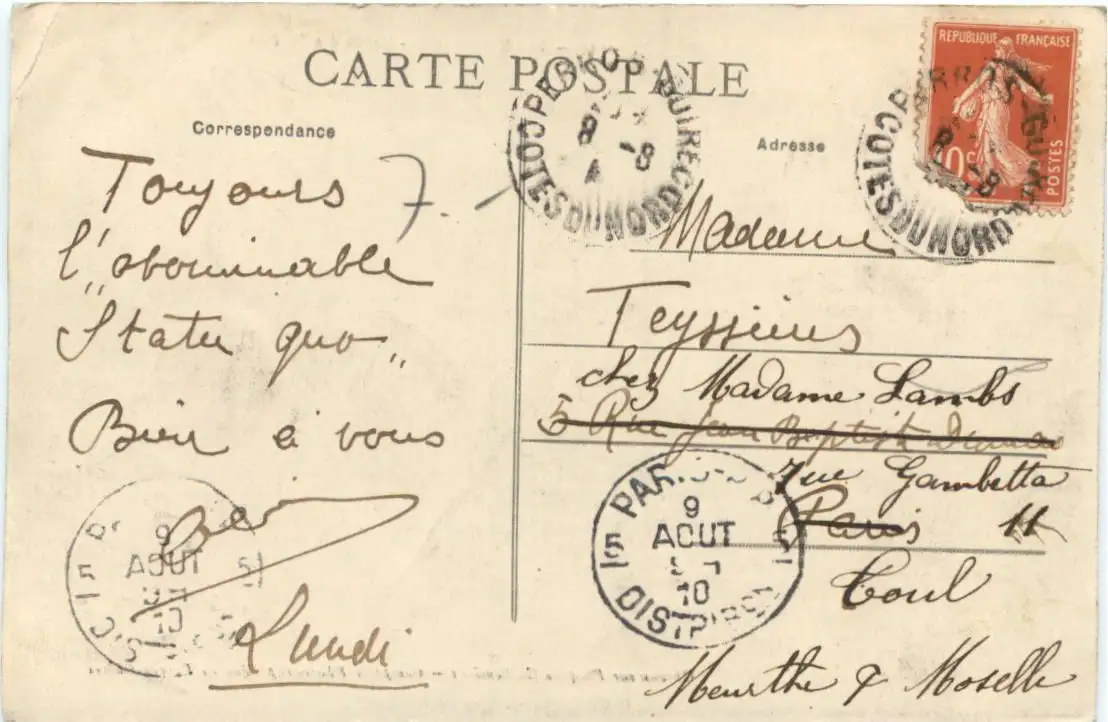 CARTE POSTALE
Correspondance
Toujours
l'"abominable
Statu quo"
Bien à vous
Lundi
Adresse
REPUBLIQUE FRANÇAISE
10c
POSTES
PERROS-GUIREC
COTES DU NORD
8 -8
PERROS-GUIREC
COTES DU NORD
8 -8
Madame
Teyssieus
chez Madame Lambs
5 Rue Jean Baptiste Dumas
rue Gambetta
Paris 11
Toul
Meurthe & Moselle
PARIS
9
AOUT
10
15 DISTRIBON
9
AOUT
10